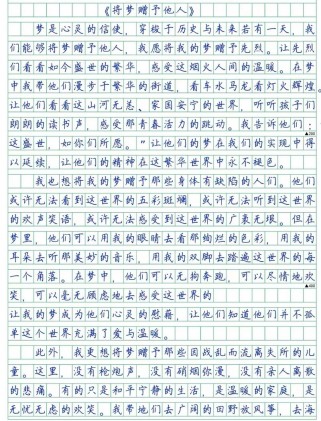 《将梦赠予他人》
梦是心灵的信使，穿梭于历史与未来若有一天，我
们能够将梦赠予他人，我愿将我的梦赠予先烈。让先烈
们看看如今盛世的繁华，感受这烟火人间的温暖。在梦
中我带他们漫步于繁华的街道，看车水马龙看灯火辉煌。
让他们看看这山河无恙、家国安宁的世界，听听孩子们
朗朗的读书声，感受那青春活力的跳动。我告诉他们：
这盛世，如你们所愿。”让他们的梦在我们的实现中得
以延续，让他们的精神在这繁华世界中永不褪色。
我也想将我的梦赠予那些身体有缺陷的人们。他们
或许无法看到这世界的五彩斑斓，或许无法听到这世界
的欢声笑语，或许无法感受到这世界的广袤无垠。但在
梦里，他们可以用我的眼睛去看那绚烂的色彩，用我的
耳朵去听那美妙的音乐，用我的双脚去踏遍这世界的每
一个角落。在梦中，他们可以无拘奔跑，可以尽情地欢
笑，可以毫无顾虑地去感受这世界的
让我的梦成为他们心灵的慰藉，让他们知道他们并不孤
单这个世界充满了爱与温暖。
此外，我更想将梦赠予那些因战乱而流离失所的儿
童。这里，没有枪炮声，没有硝烟弥漫，没有亲人离散
的悲痛。有的只是和平宁静的生活，是温暖的家庭，是
无忧无虑的欢笑。我带他们去广阔的田野放风筝，去海